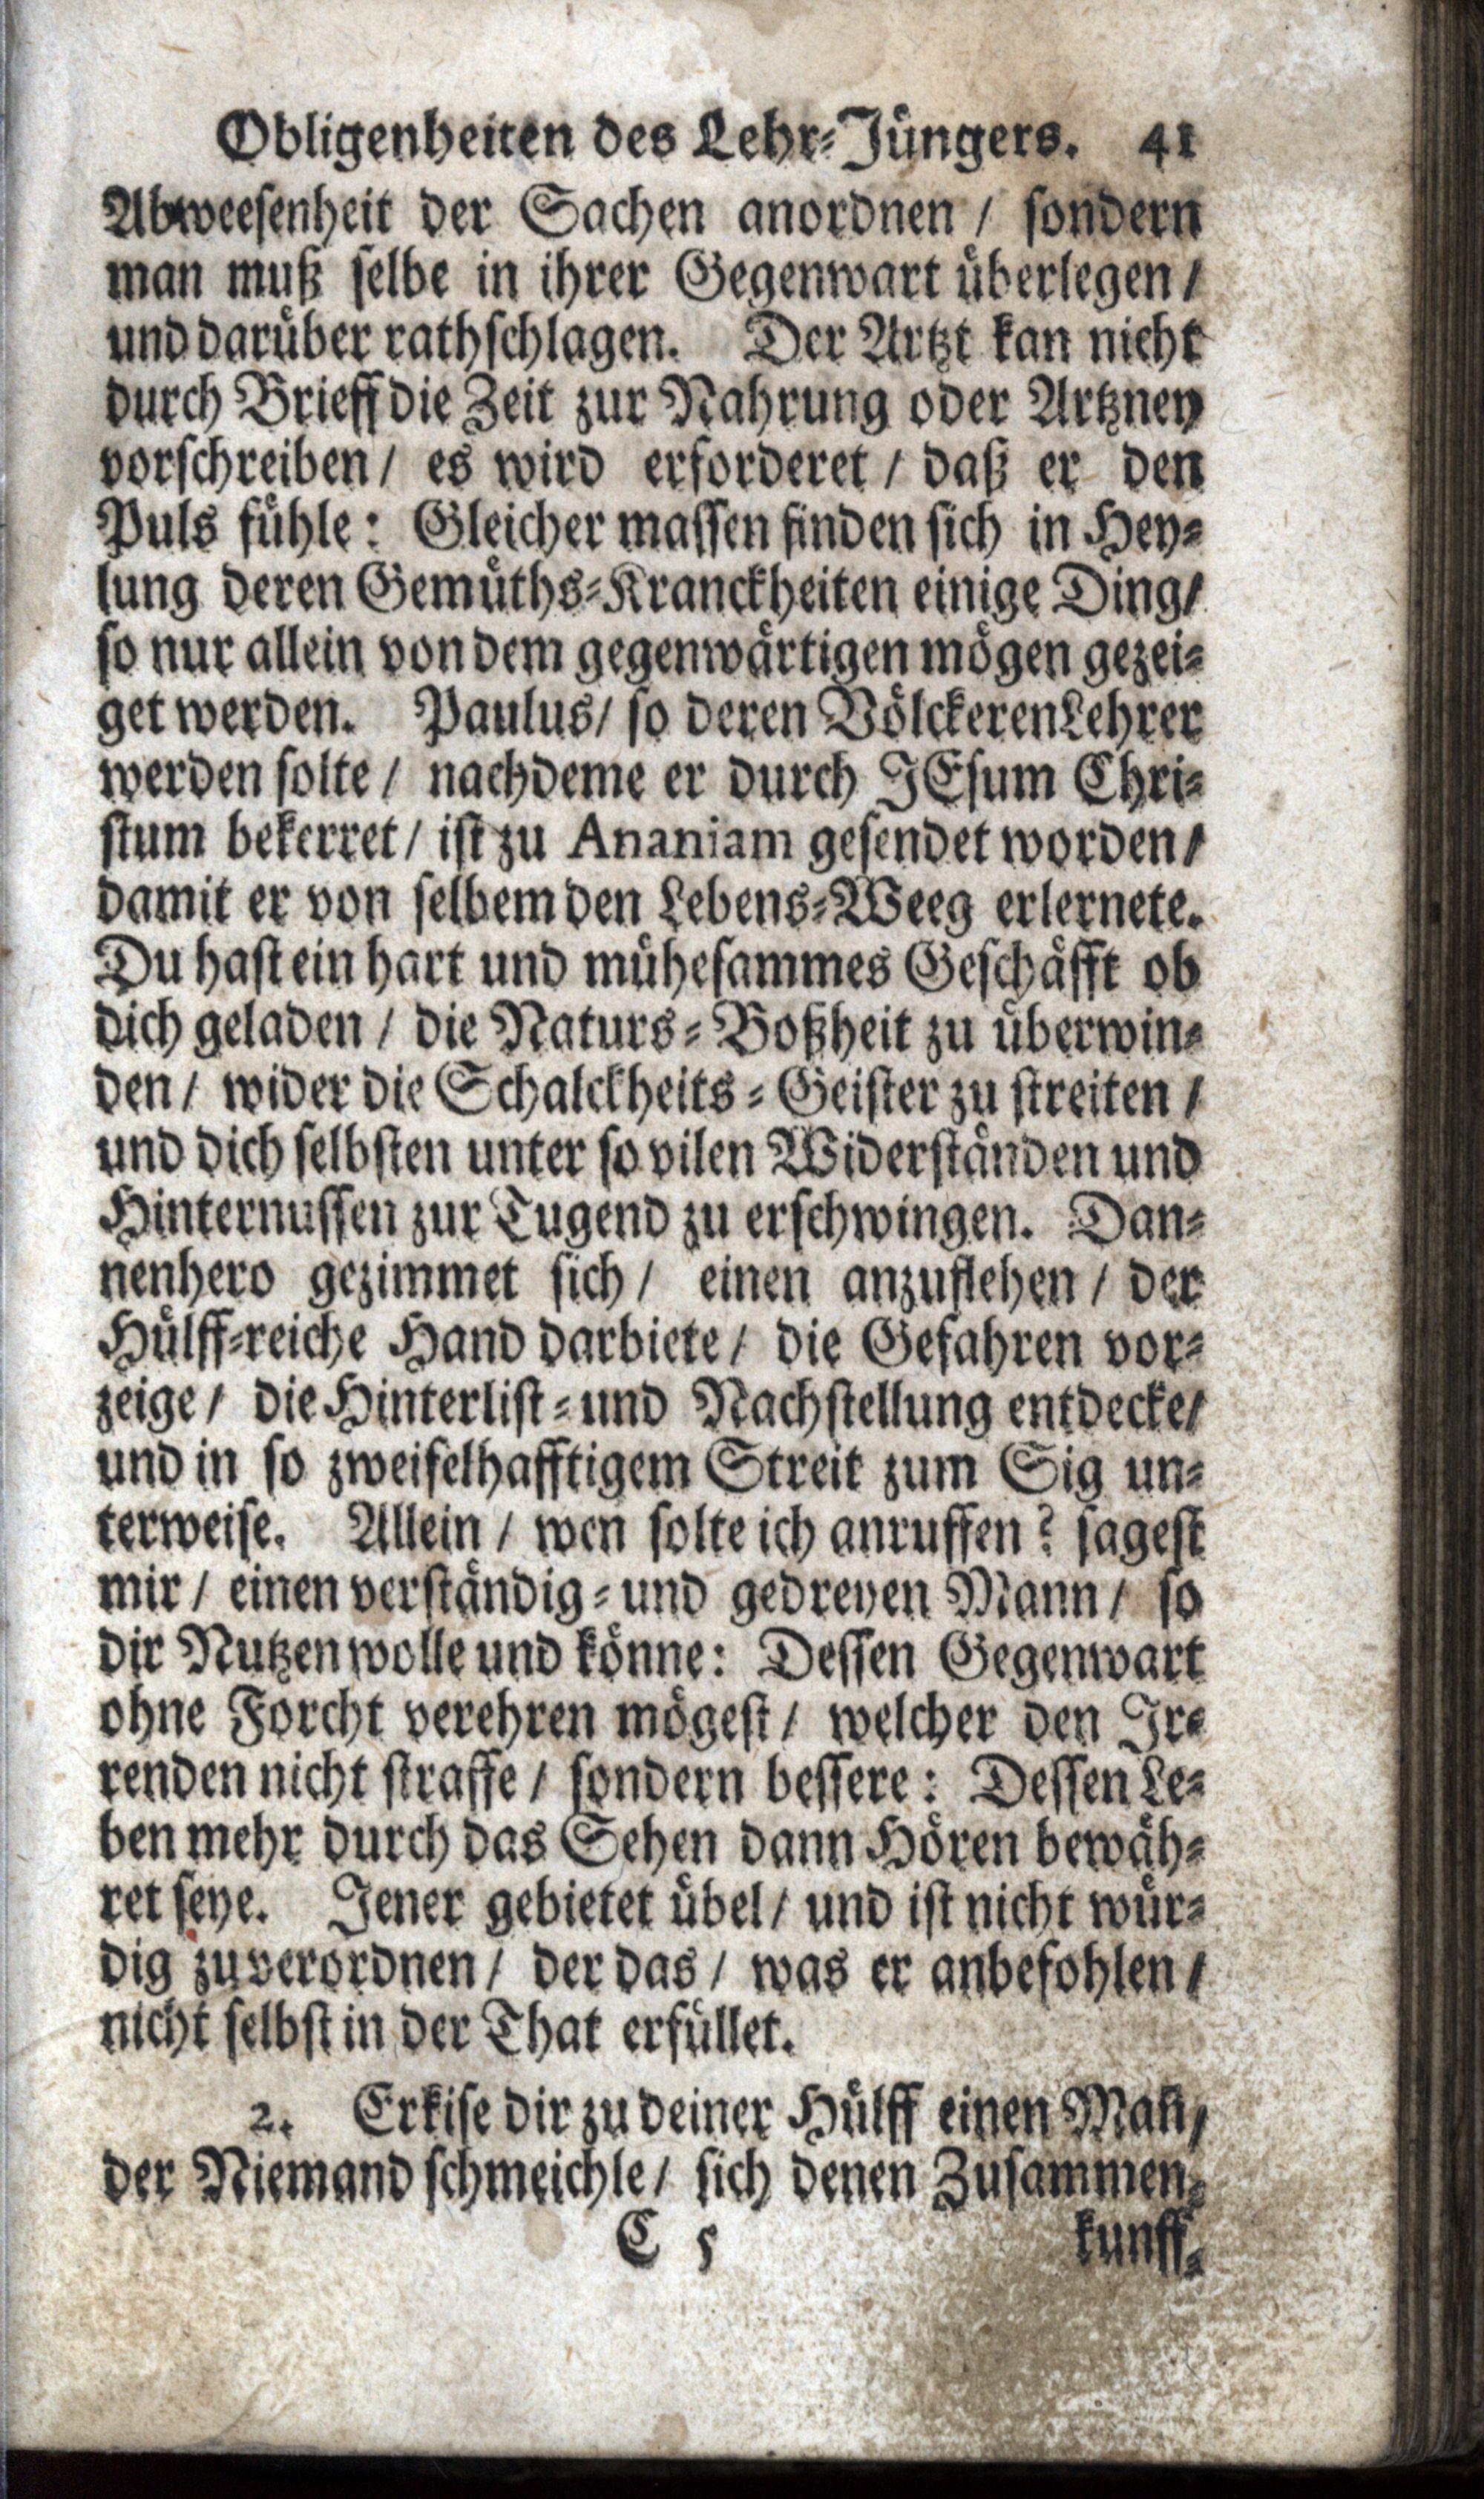 Obligenheiten des Lehr-Jüngers. 41
Abweesenheit der Sachen anordnen / sondern
man muß selbe in ihrer Gegenwart überlegen /
und darüber rathschlagen. Der Artzt kan nicht
durch Brieff die Zeit zur Nahrung oder Artzney
vorschreiben / es wird erforderet / daß er den
Puls fühle: Gleicher massen finden sich in Hey-
lung deren Gemüths-Kranckheiten einige Ding /
so nur allein von dem gegenwärtigen mögen gezei-
get werden. Paulus / so deren Völckeren Lehrer
werden solte / nachdeme er durch JEsum Chri-
stum bekerret / ist zu Ananiam gesendet worden /
damit er von selbem den Lebens-Weeg erlernete.
Du hast ein hart und mühesammes Geschäfft ob
dich geladen / die Naturs-Boßheit zu überwin-
den / wider die Schalckheits-Geister zu streiten /
und dich selbsten unter so vilen Widerständen und
Hinternussen zur Tugend zu erschwingen. Dan-
nenhero gezimmet sich / einen anzuflehen / der
Hülff-reiche Hand darbiete / die Gefahren vor-
zeige / die Hinterlist- und Nachstellung entdecke /
und in so zweifelhafftigem Streit zum Sig un-
terweise. Allein / wen solte ich anruffen? sagest
mir / einen verständig- und gedreyen Mann / so
dir Nutzen wolle und könne: Dessen Gegenwart
ohne Forcht verehren mögest / welcher den Ir-
renden nicht straffe / sondern bessere: Dessen Le-
ben mehr durch das Sehen dann Hören bewäh-
ret seye. Jener gebietet übel / und ist nicht wür-
dig zu verordnen / der das / was er anbefohlen /
nicht selbst in der That erfüllet.
2. Erkise dir zu deiner Hülff einen Mañ /
der Niemand schmeichle / sich denen Zusammen-
C 5 kunff-